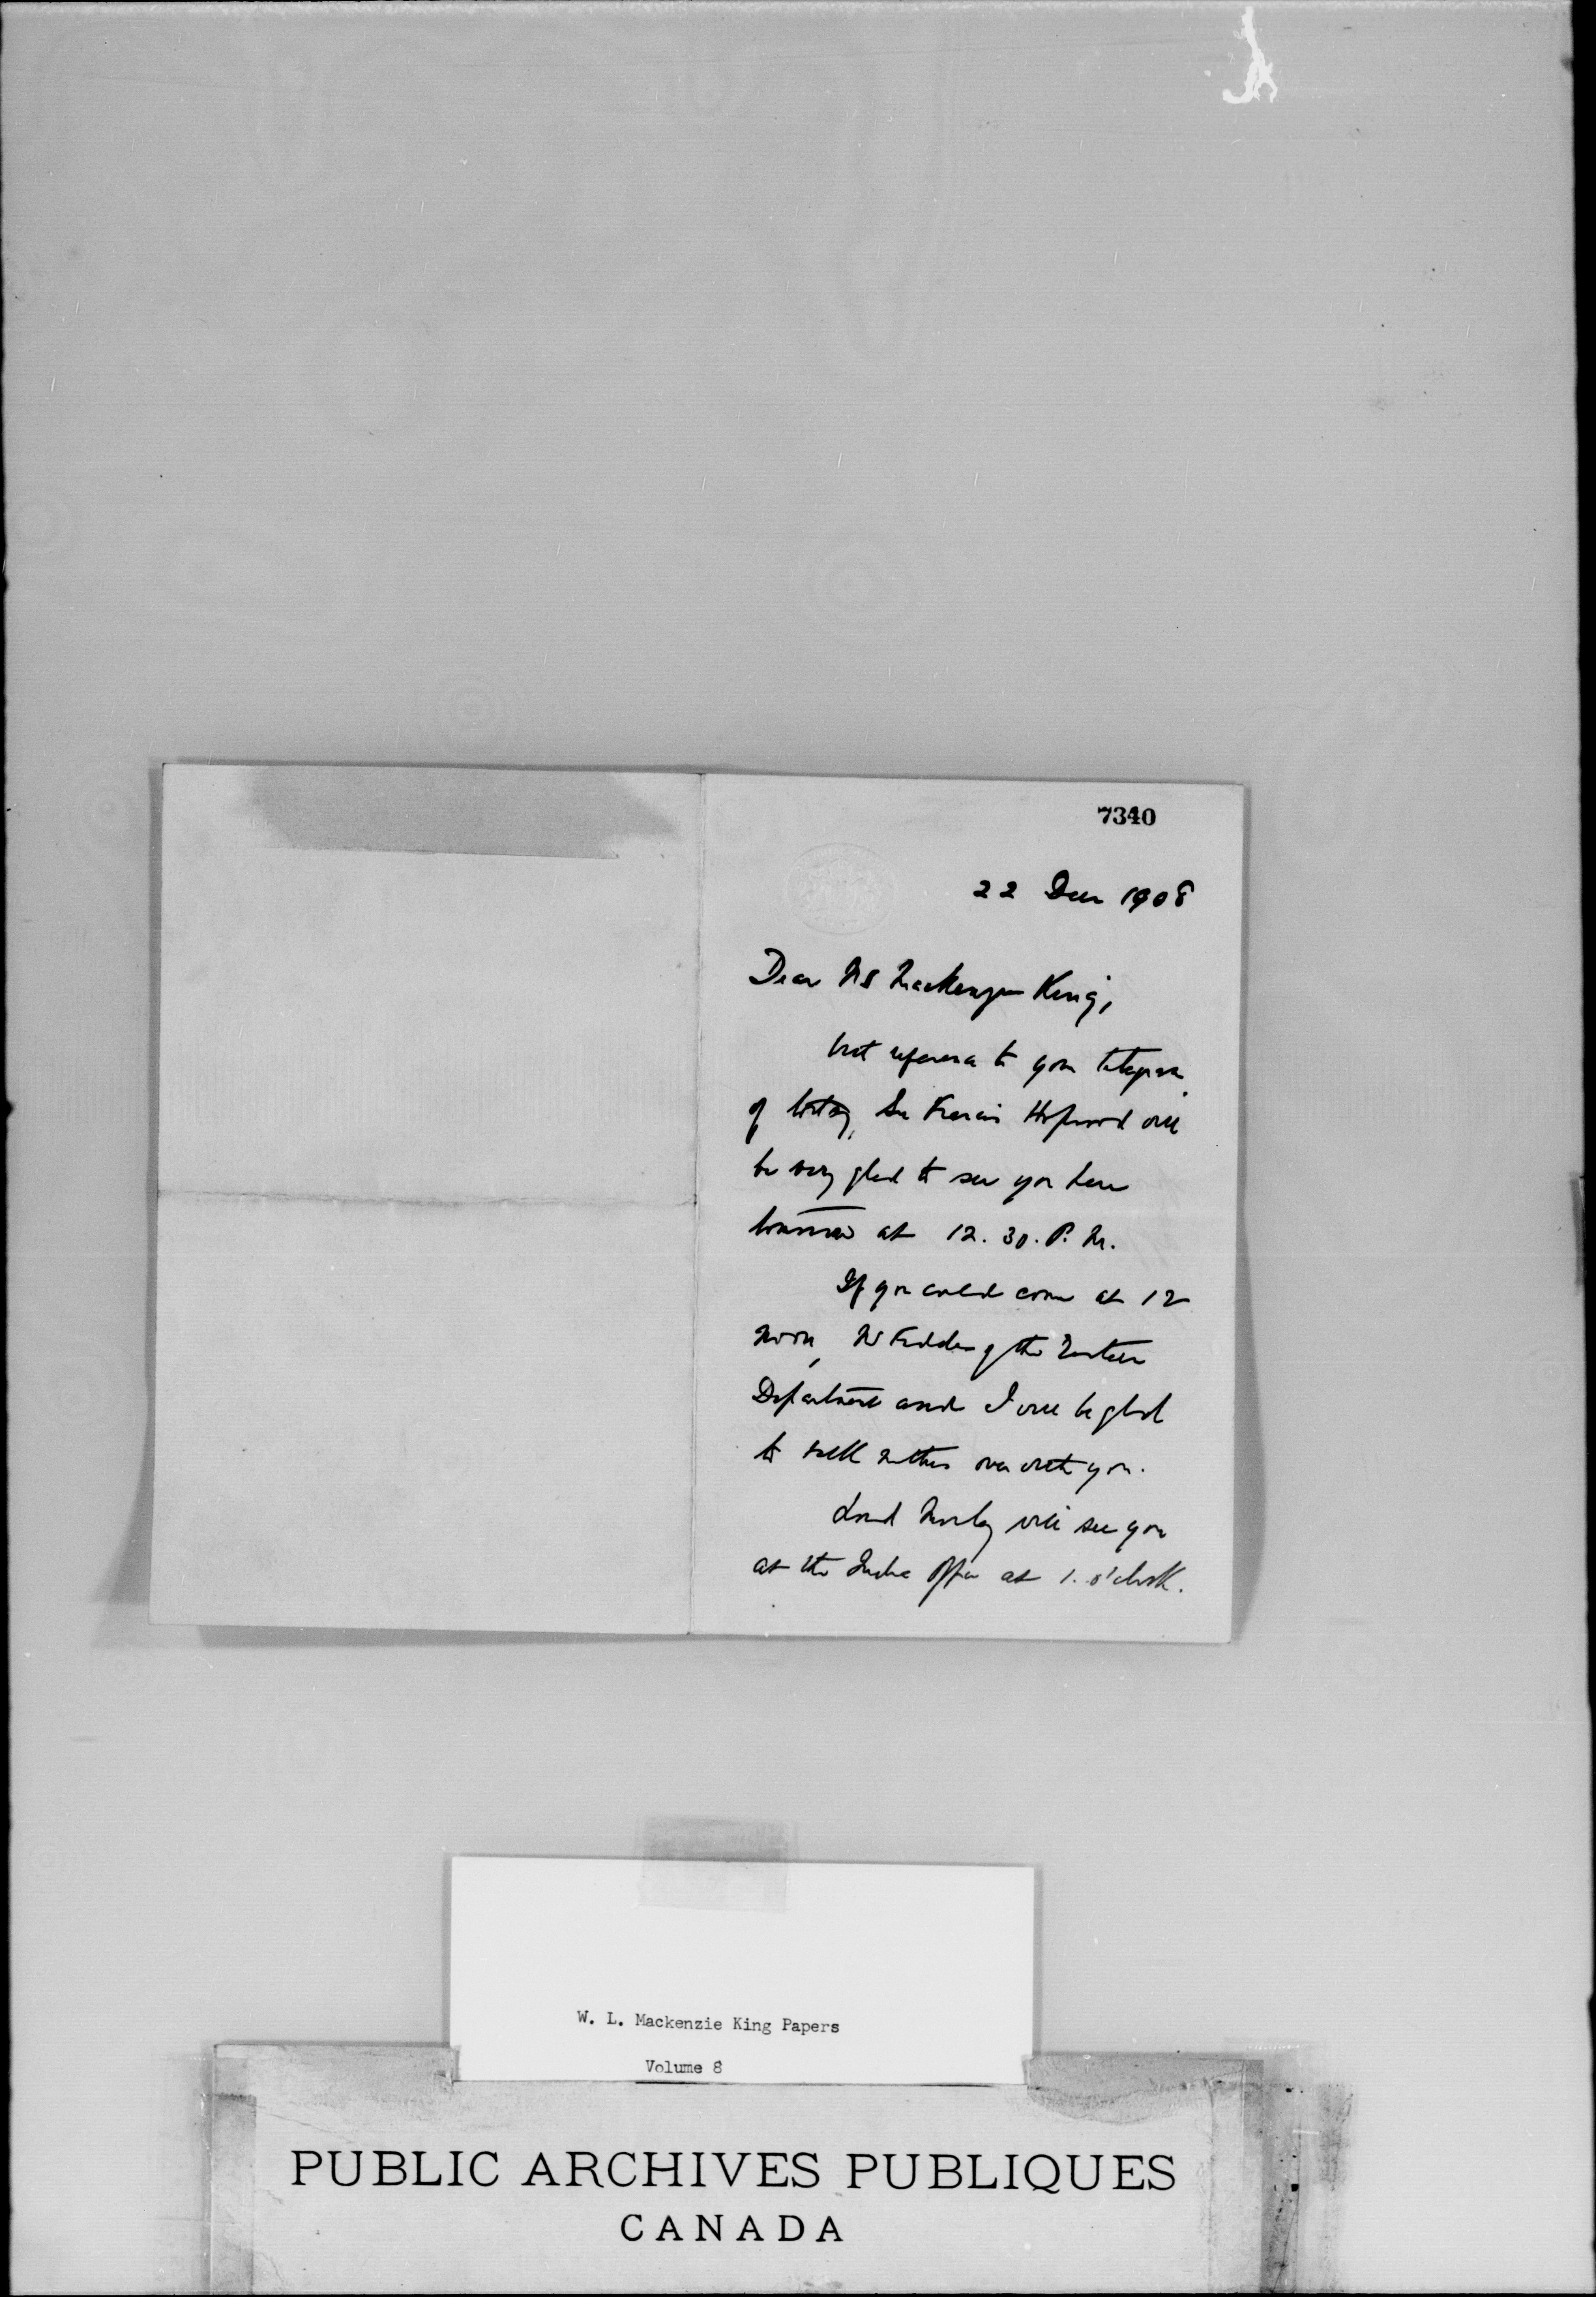 7340
22 Decr 1908
Dear Mr Mackenzie King,
With reference to your telegram
of today, Sir Francis Hopwood will
be very glad to see you here
tomorrow at 12.30. P.M.
If you could come at 12
noon, Mr Fiddes of the Eastern
Department and I will be glad
to talk matters over with you.
Lord Morley will see you
at the India Office at 1. o'clock.
W. L. Mackenzie King Papers
Volume 8
PUBLIC ARCHIVES PUBLIQUES
CANADA